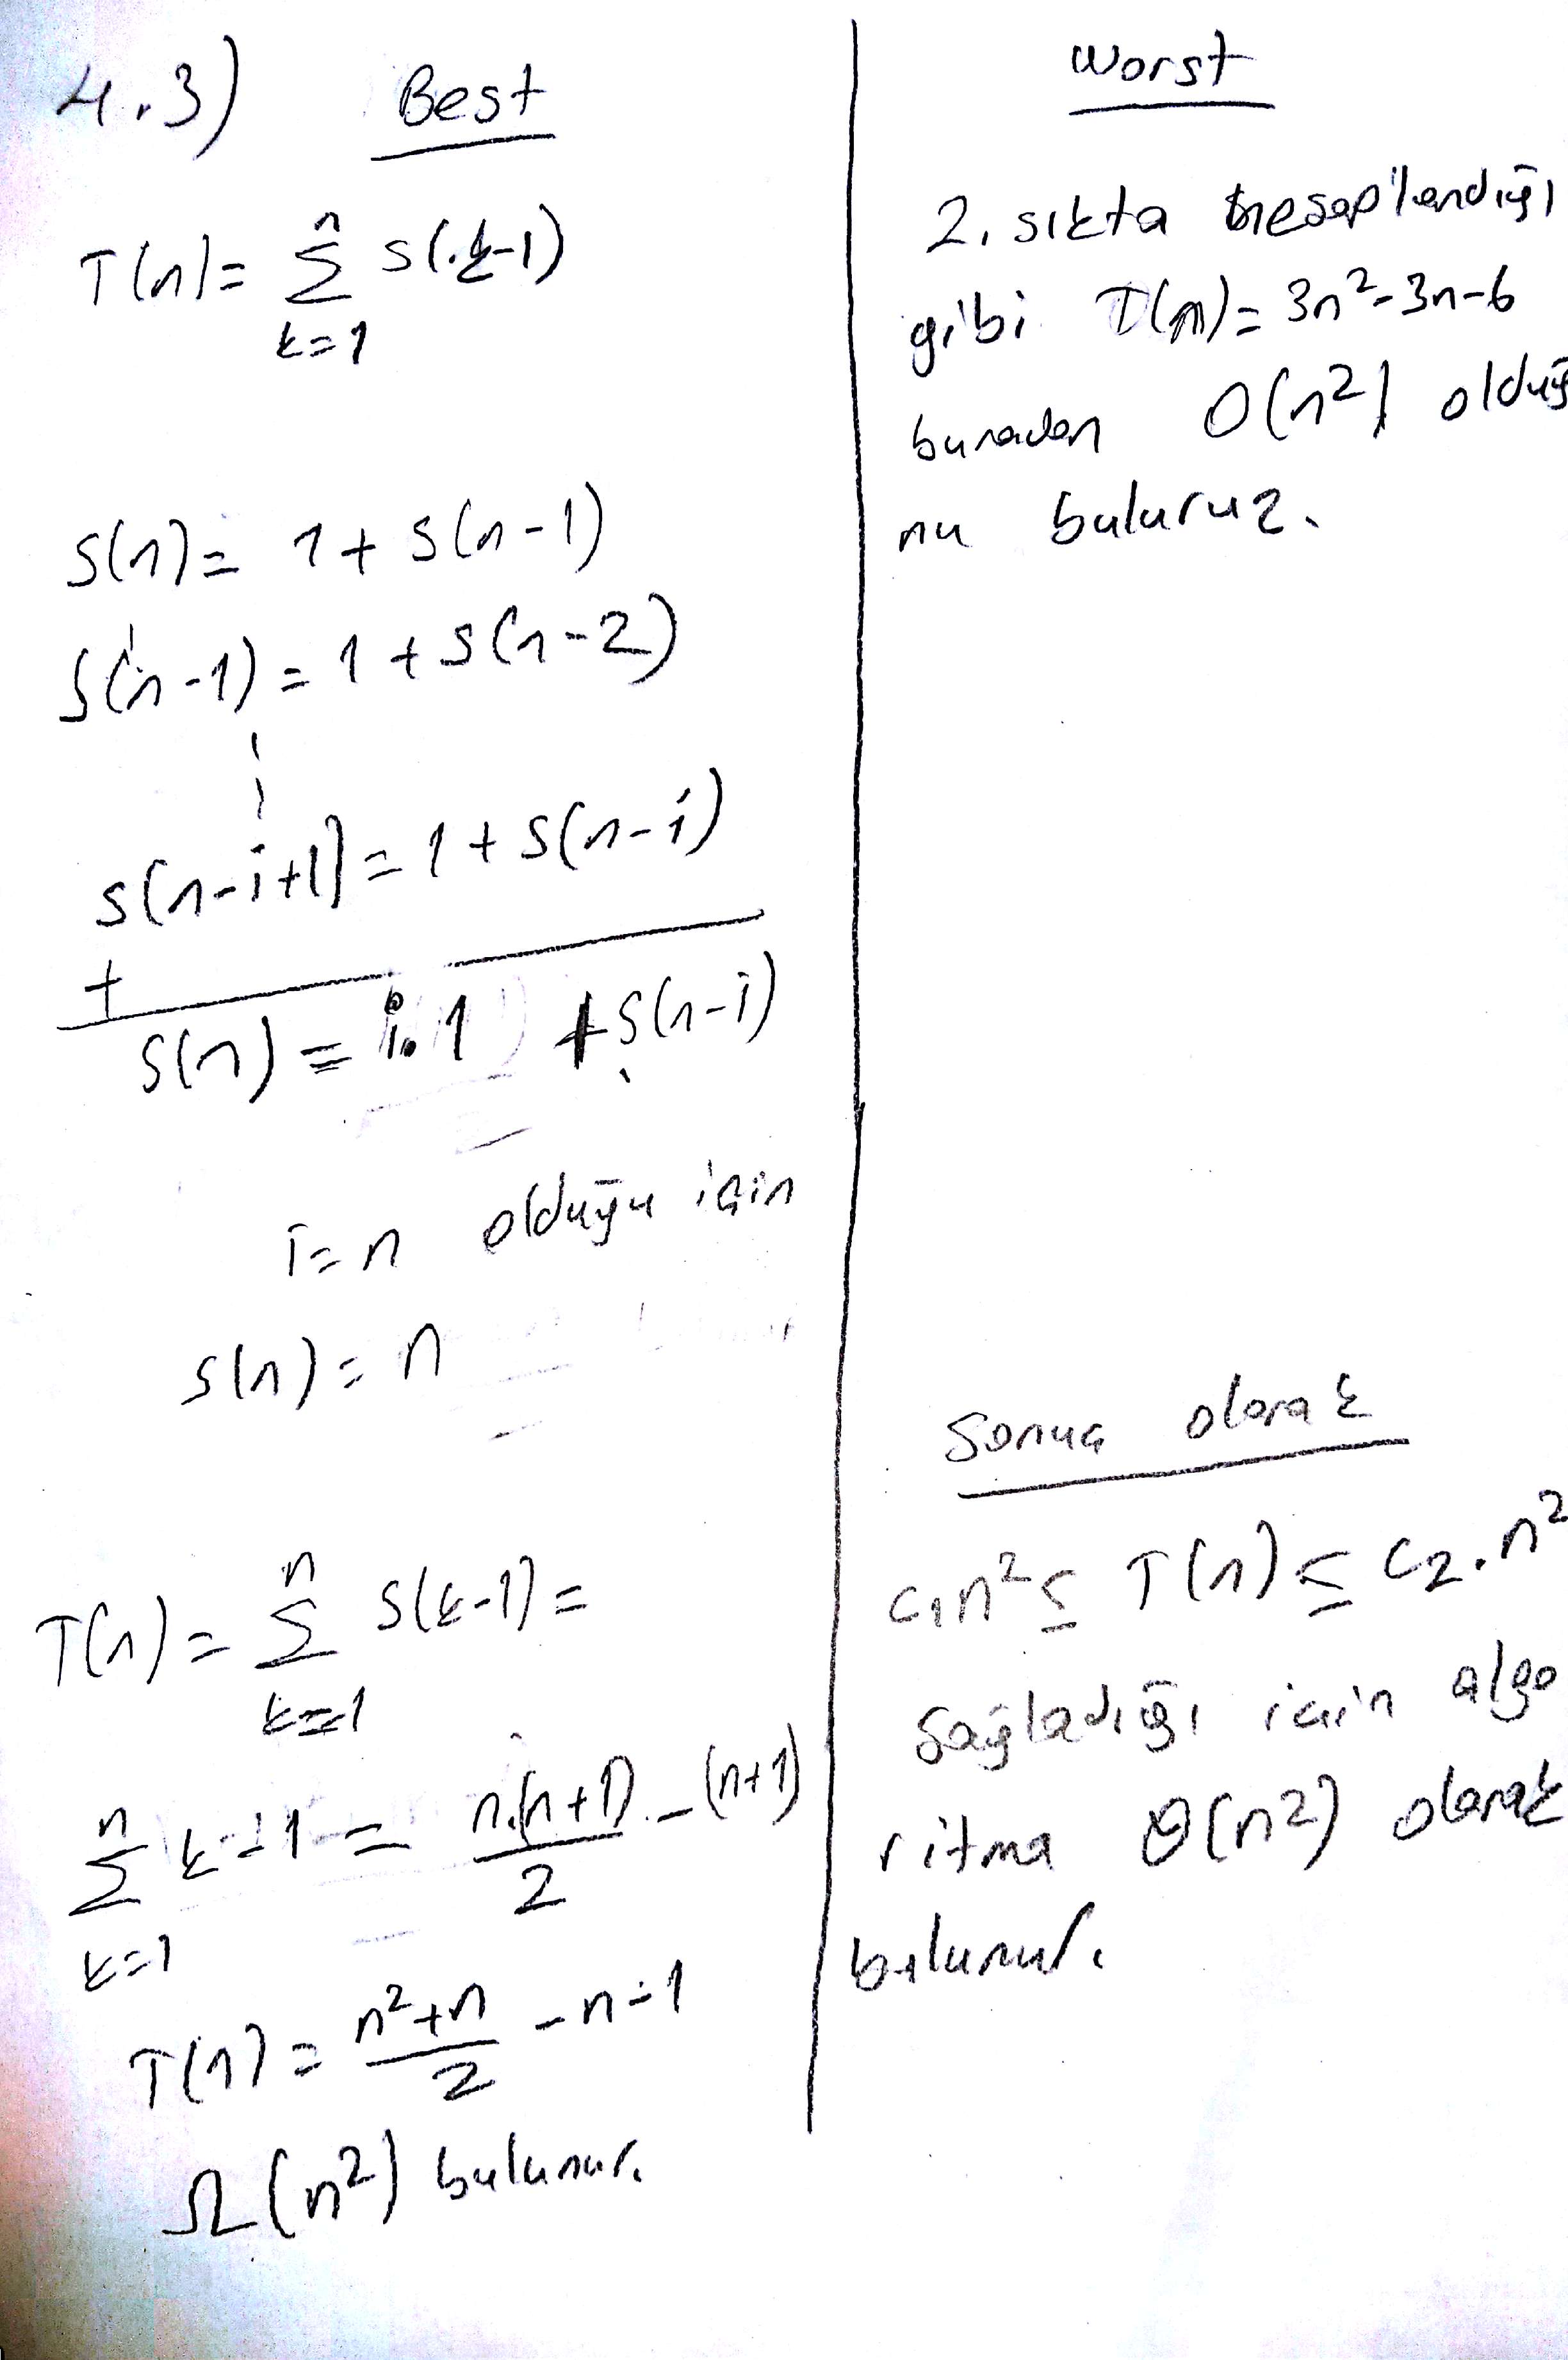 4.3) Best
T(n) = n Σ k=1 S(k-1)
S(n) = 1 + S(n-1)
S(n-1) = 1 + S(n-2)
S(n-i+1) = 1 + S(n-i)
+
S(n) = i.1 + S(n-i)
i=n olduğu için
S(n) = n
T(n) = n Σ k=1 S(k-1) =
n Σ k=1 k-1 = n.(n+1)/2 - (n+1)
T(n) = n²+n/2 - n-1
Ω(n²) bulunur.
Worst
2. sıkta hesaplandığı
gibi T(n) = 3n²-3n-6
buradan O(n²) olduğ
nu buluruz.
Sonuç olarak
c₁n² ≤ T(n) ≤ c₂.n²
sağladığı için algo
ritma Θ(n²) olarak
bulunur.